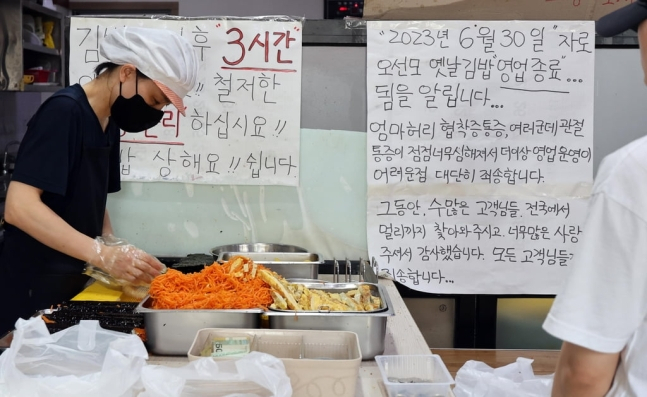 "3시간"
철저한
하십시요!!
밥 상해요!! 쉽니다.
"2023년 6월 30일" 자로
오선모 옛날김밥 "영업 종료"...
됨을 알립니다...
엄마허리 협착증통증, 여러군데 관절
통증이 점점너무심해져서 더이상 영업운영이
어려운점 대단히 죄송합니다.
그동안, 수많은 고객님들, 전국에서
멀리까지 찾아와 주시고. 너무많은 사랑
주셔서 감사했습니다. 모든 고객님들
죄송합니다...